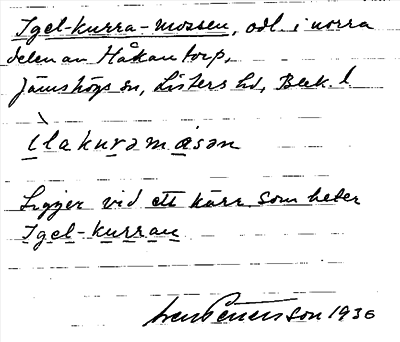 Igel-kurra-mossen, odl. i norra
delen av Håkantorp,
Jämshögs sn, Listers hd, Blek. l
ìlakuramåsan
Ligger vid ett kärr som heter
Igel-kurran
Sven Benson 1936